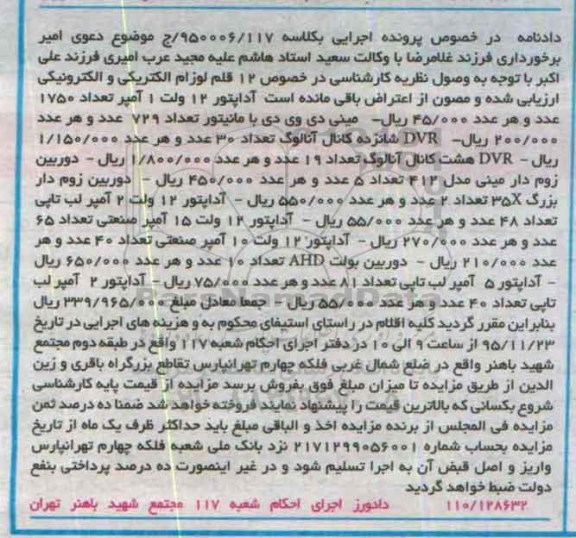 دادنامه در خصوص پرونده اجرایی بکلاسه ۹۵۰۰۰۶/۱۱۷/ج موضوع دعوی امیر
برخورداری فرزند غلامرضا با وکالت سعید استاد هاشم علیه مجید عرب امیری فرزند علی
اکبر با توجه به وصول نظریه کارشناسی در خصوص ۱۲ قلم لوزام الکتریکی و الکترونیکی
ارزیابی شده و مصون از اعتراض باقی مانده است آداپتور ۱۲ ولت ۱ آمپر تعداد ۱۷۵۰
عدد و هر عدد ۴۵/۰۰۰ ریال- مینی دی وی دی با مانیتور تعداد ۷۲۹ عدد و هر عدد
۲۰۰/۰۰۰ ریال- DVR شانزده کانال آنالوگ تعداد ۳۰ عدد و هر عدد ۱/۱۵۰/۰۰۰
ریال - DVR هشت کانال آنالوگ تعداد ۱۹ عدد و هر عدد ۱/۸۰۰/۰۰۰ ریال - دوربین
زوم دار مینی مدل ۴۱۲ تعداد ۵ عدد و هر عدد ۴۵۰/۰۰۰ ریال - دوربین زوم دار
بزرگ ۳۵X تعداد ۲ عدد و هر عدد ۵۵۰/۰۰۰ ریال - آداپتور ۱۲ ولت ۲ آمپر لب تاپی
تعداد ۴۸ عدد و هر عدد ۵۵/۰۰۰ ریال - آداپتور ۱۲ ولت ۱۵ آمپر صنعتی تعداد ۶۵
عدد و هر عدد ۲۷۰/۰۰۰ ریال - آداپتور ۱۲ ولت ۱۰ آمپر صنعتی تعداد ۴۰ عدد و هر
عدد ۲۱۰/۰۰۰ ریال - دوربین بولت AHD تعداد ۱۰ عدد و هر عدد ۶۵۰/۰۰۰ ریال
- آداپتور ۵ آمپر لب تاپی تعداد ۸۱ عدد و هر عدد ۷۵/۰۰۰ ریال - آداپتور ۲ آمپر لب
تاپی تعداد ۴۰ عدد و هر عدد ۵۵/۰۰۰ ریال - جمعا معادل مبلغ ۳۳۹/۹۶۵/۰۰۰ ریال
بنابراین مقرر گردید کلیه اقلام در راستای استیفای محکوم به و هزینه های اجرایی در تاریخ
۹۵/۱۱/۲۳ از ساعت ۹ الی ۱۰ در دفتر اجرای احکام شعبه ۱۱۷ واقع در طبقه دوم مجتمع
شهید باهنر واقع در ضلع شمال غربی فلکه چهارم تهرانپارس تقاطع بزرگراه باقری و زین
الدین از طریق مزایده تا میزان مبلغ فوق بفروش برسد مزایده از قیمت پایه کارشناسی
شروع بکسانی که بالاترین قیمت را پیشنهاد نمایند فروخته خواهد شد ضمنا ده درصد ثمن
مزایده فی المجلس از برنده مزایده اخذ و الباقی مبلغ باید حداکثر ظرف یک ماه از تاریخ
مزایده بحساب شماره ۲۱۷۱۲۹۹۰۵۶۰۰۱ نزد بانک ملی شعبه فلکه چهارم تهرانپارس
واریز و اصل قبض آن به اجرا تسلیم شود و در غیر اینصورت ده درصد پرداختی بنفع
دولت ضبط خواهد گردید
۱۱۰/۱۲۸۶۳۲ دادورز اجرای احکام شعبه ۱۱۷ مجتمع شهید باهنر تهران